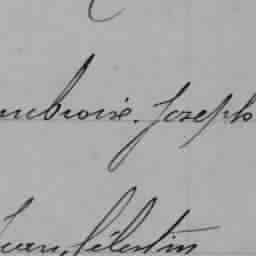 mbroise. Joseph
Jean, Célestin